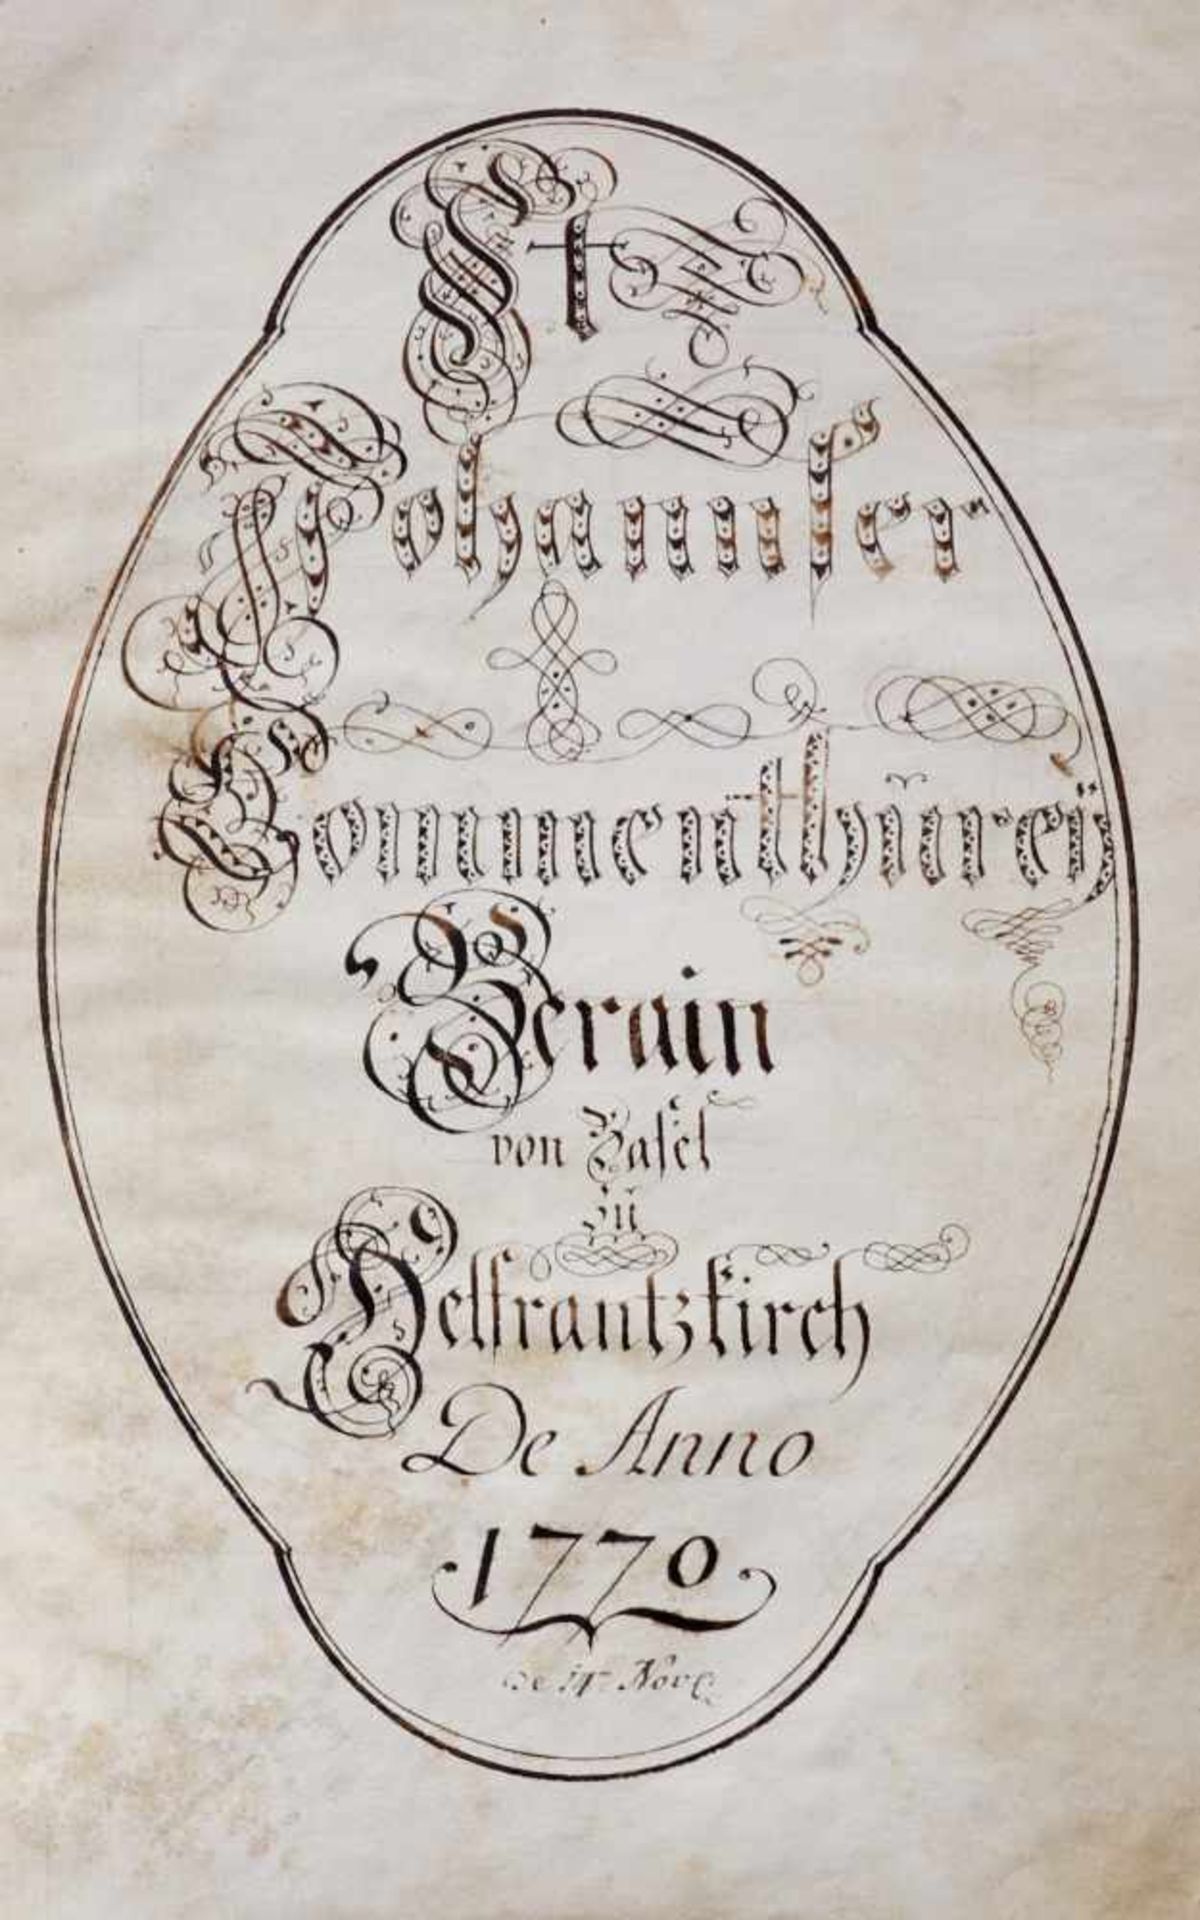 St
Johannser
Commenthüreÿ
Berain
von Basel
zü
Helfrantzkirch
De Anno
1770
de 14 Nov